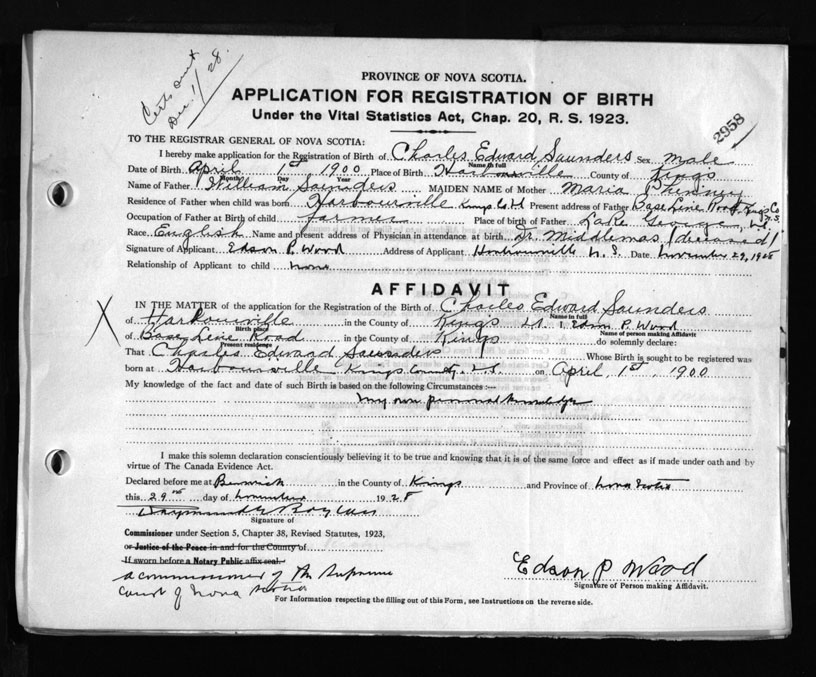 Dec. 1/28.
PROVINCE OF NOVA SCOTIA.
APPLICATION FOR REGISTRATION OF BIRTH
Under the Vital Statistics Act, Chap. 20, R. S. 1923.
2958
TO THE REGISTRAR GENERAL OF NOVA SCOTIA:
I hereby make application for the Registration of Birth of Charles Edward Saunders Sex male
Name in full
Date of Birth April 1st 1900 Place of Birth Harbourville County of Kings
Month Day Year
Name of Father William Saunders MAIDEN NAME of Mother Maria
Residence of Father when child was born Harbourville Kings Co. Present address of Father Base Line Road, Kings Co. N.S.
Occupation of Father at Birth of child farmer Place of birth of Father Lake George
Race English Name and present address of Physician in attendance at birth Dr. Middlemas (deceased)
Signature of Applicant Edson P. Wood Address of Applicant Harbourville N. S. Date November 29, 1928
Relationship of Applicant to child none
AFFIDAVIT
IN THE MATTER of the application for the Registration of the Birth of Charles Edward Saunders
Name in full
of Harbourville in the County of Kings I, Edson P. Wood
Birth place
Name of person making Affidavit
of Base Line Road in the County of Kings do solemnly declare:
Present residence
That Charles Edward Saunders Whose Birth is sought to be registered was
born at Harbourville Kings County N.S. on April 1st, 1900
My knowledge of the fact and date of such Birth is based on the following Circumstances:—
My own personal knowledge
I make this solemn declaration conscientiously believing it to be true and knowing that it is of the same force and effect as if made under oath and by
virtue of The Canada Evidence Act.
Declared before me at Berwick in the County of Kings and Province of Nova Scotia
this 29th day of November 1928
Signature of
Commissioner under Section 5, Chapter 38, Revised Statutes, 1923,
or Justice of the Peace in and for the County of
If sworn before a Notary Public affix seal.
A commissioner of the Supreme
Court of Nova Scotia
Edson P Wood
Signature of Person making Affidavit.
For Information respecting the filling out of this Form, see Instructions on the reverse side.